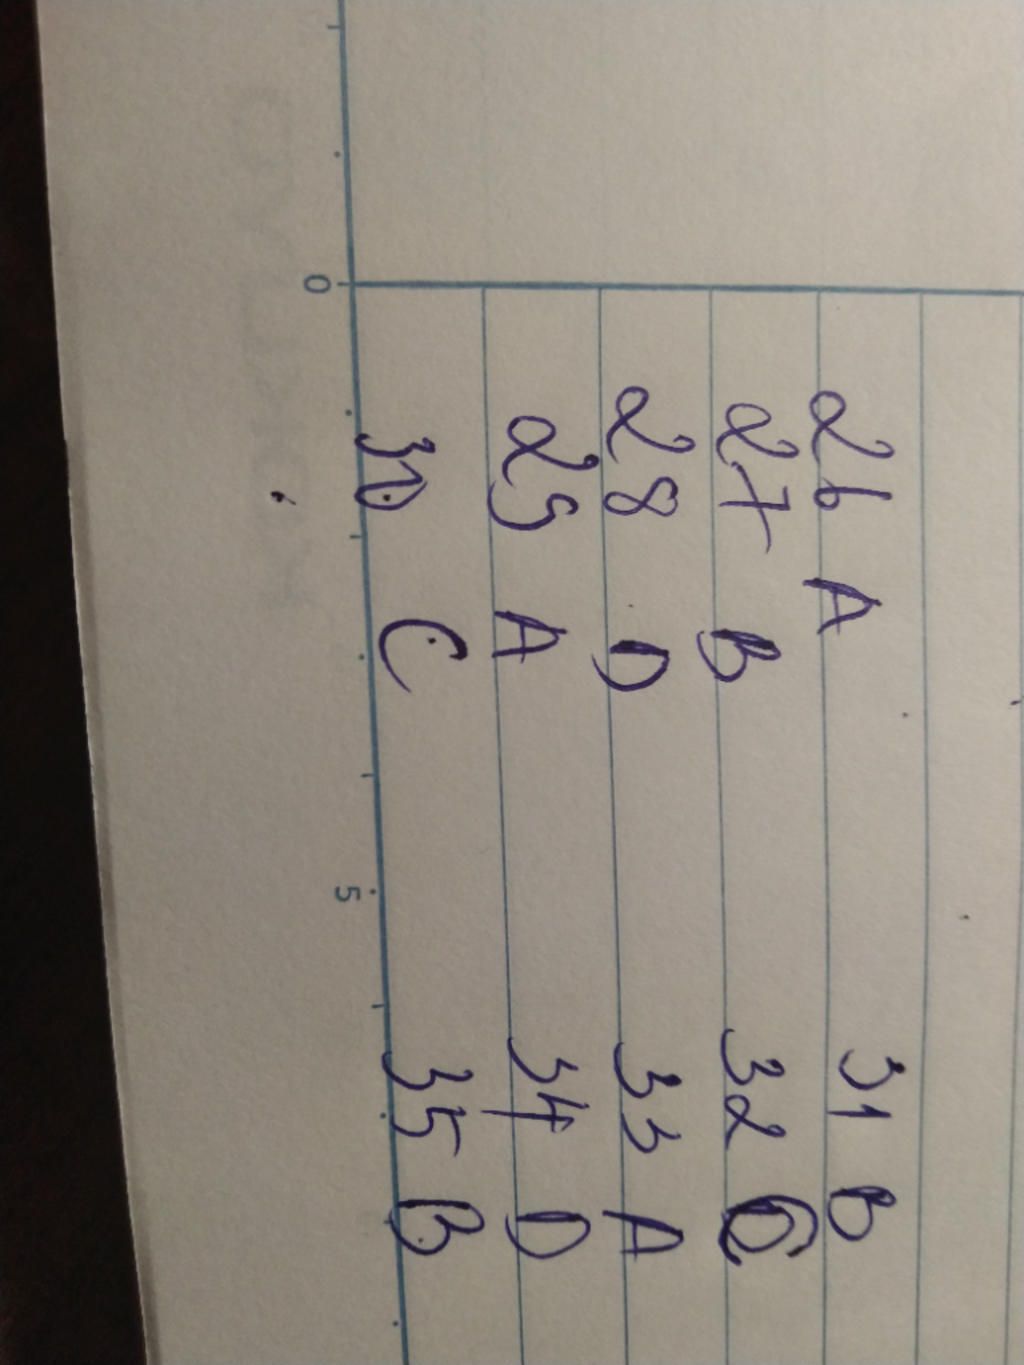 26 A 31 B
27 B 32 C
28 D 33 A
29 A 34 D
30 C 35 B
0 5